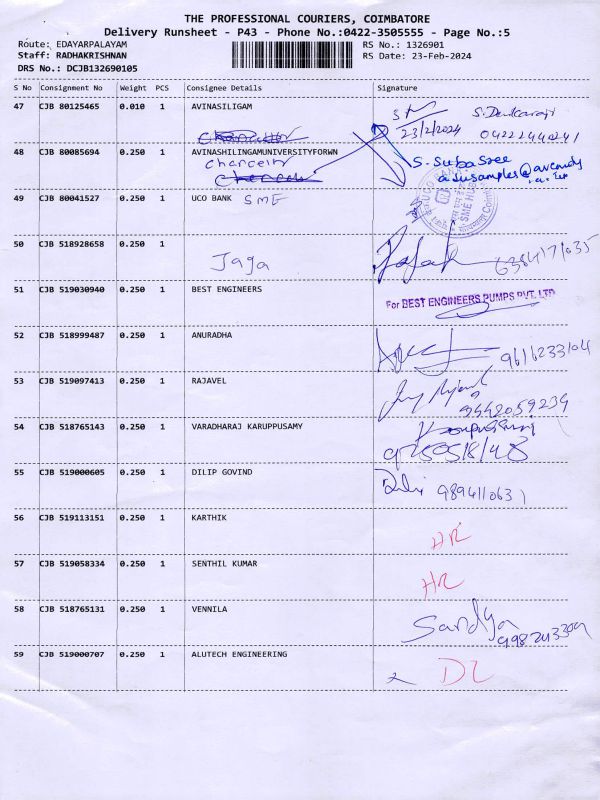 THE PROFESSIONAL COURIERS, COIMBATORE
Delivery Runsheet - P43 - Phone No.:0422-3505555 - Page No.:5
Route: EDAYARPALAYAM RS No.: 1326901
Staff: RADHAKRISHNAN RS Date: 23-Feb-2024
DRS No.: DCJB132690105
S No Consignment No Weight PCS Consignee Details Signature
47 CJB 80125465 0.010 1 AVINASILIGAM
23/2/2024 04222440241
48 CJB 80085694 0.250 1 AVINASHILINGAMUNIVERSITYFORWN
S. Suba Sree
49 CJB 80041527 0.250 1 UCO BANK SME
50 CJB 518928658 0.250 1
Jaga
51 CJB 519030940 0.250 1 BEST ENGINEERS
For BEST ENGINEERS PUMPS PVT. LTD
52 CJB 518999487 0.250 1 ANURADHA
9616233104
53 CJB 519097413 0.250 1 RAJAVEL
9442059234
54 CJB 518765143 0.250 1 VARADHARAJ KARUPPUSAMY
55 CJB 519000605 0.250 1 DILIP GOVIND
56 CJB 519113151 0.250 1 KARTHIK
HR
57 CJB 519058334 0.250 1 SENTHIL KUMAR
HR
58 CJB 518765131 0.250 1 VENNILA
Sandya
59 CJB 519000707 0.250 1 ALUTECH ENGINEERING
DL